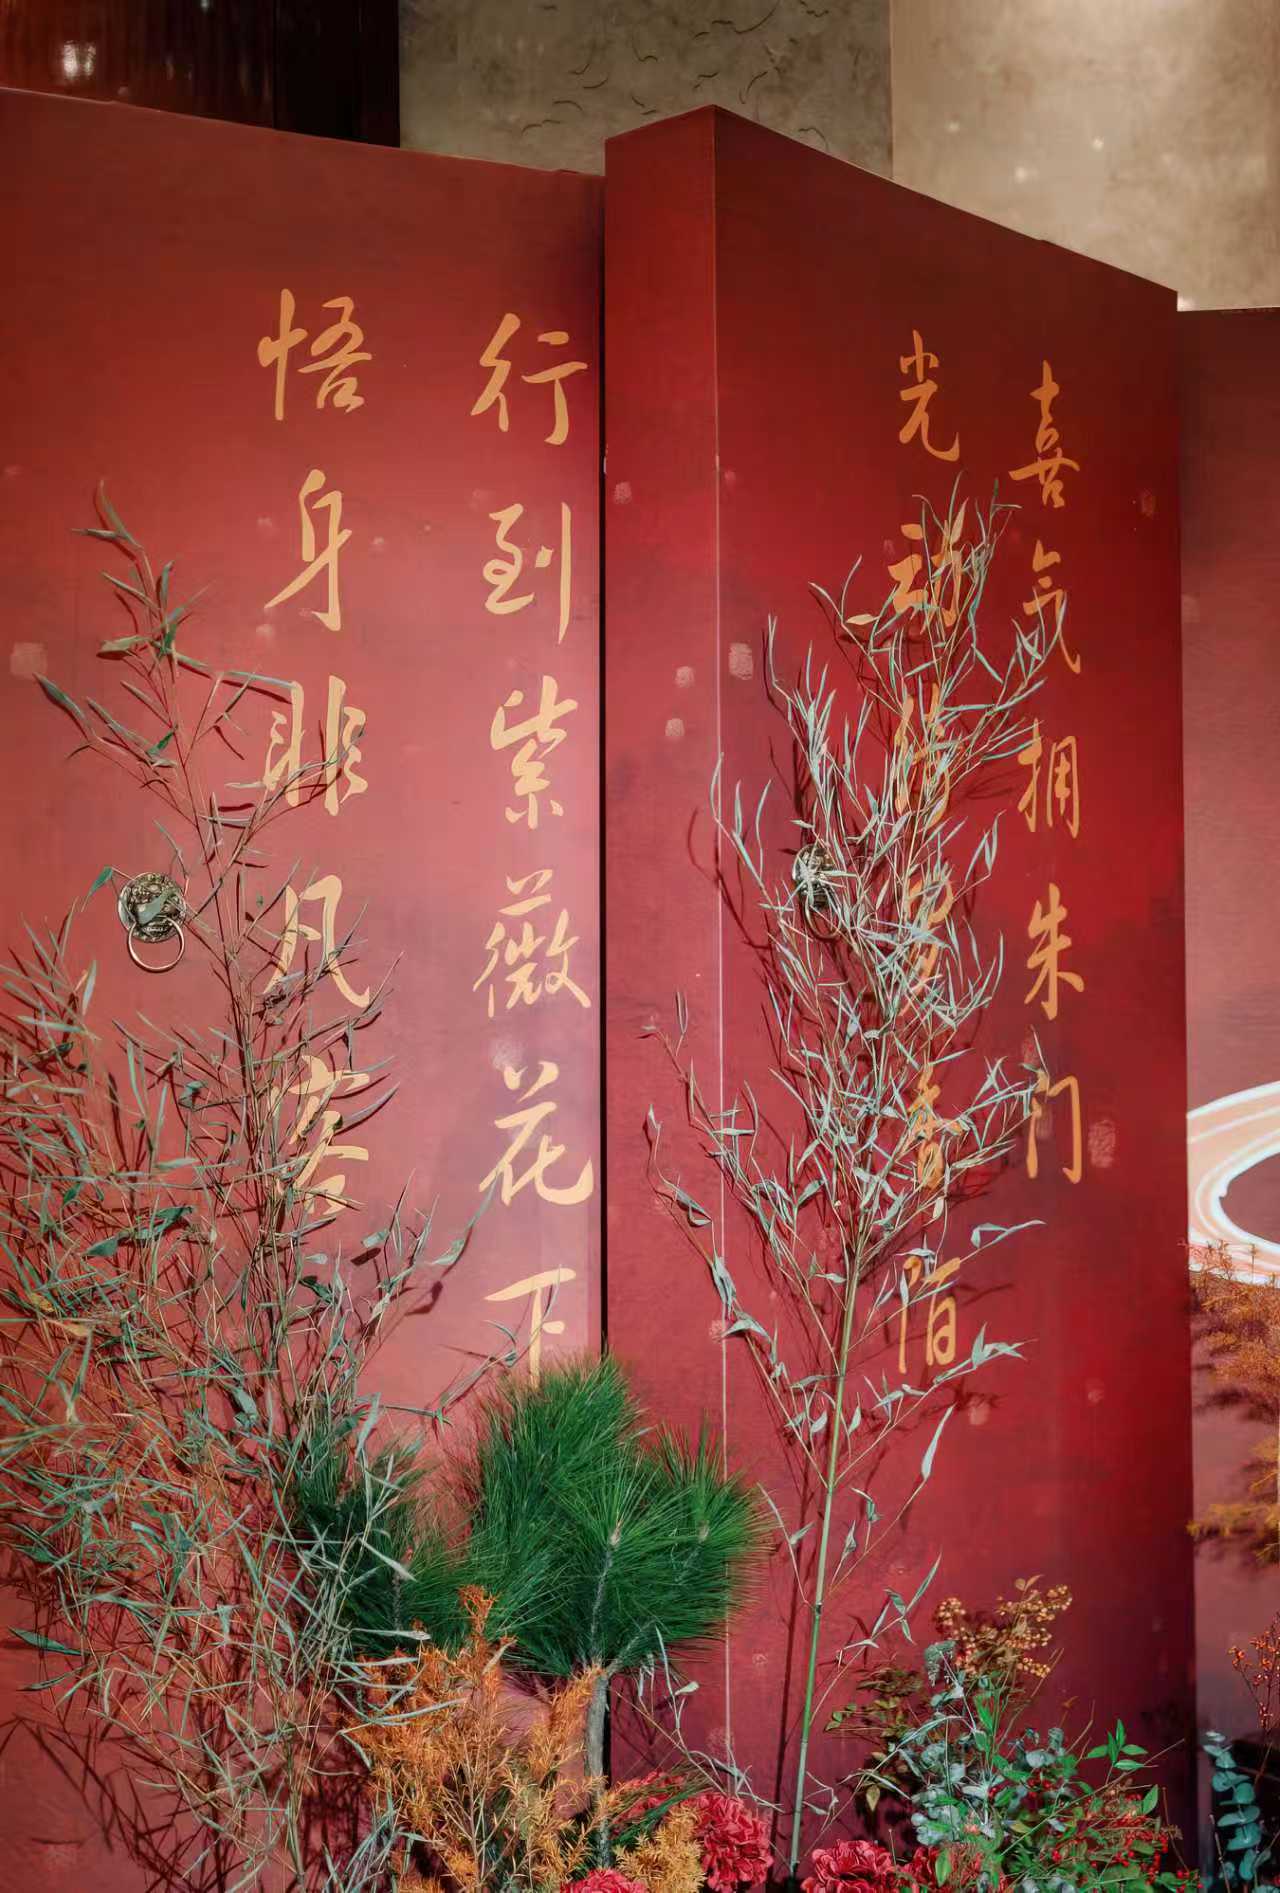 喜气拥朱门
光动绮罗香陌
行到紫薇花下
悟身非凡客